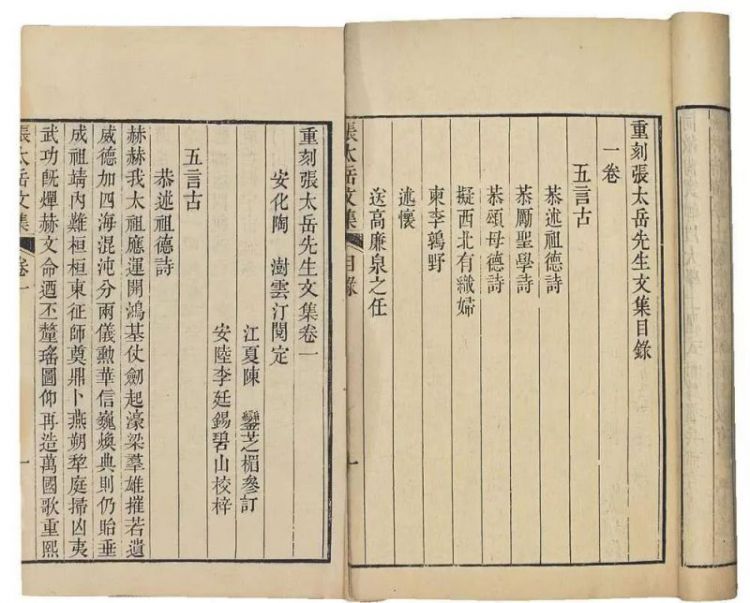 重刻張太岳先生文集目錄
一卷
五言古
恭述祖德詩
恭勵聖學詩
恭頌母德詩
擬西北有織婦
柬李鶚野
述懷
送高廉泉之任
張太岳文集 目錄 一
重刻張太岳先生文集卷一
安化陶 澍雲汀閱定
江夏陳 鑾芝楣參訂
安陸李廷錫碧山校梓
五言古
恭述祖德詩
赫赫我太祖應運開鴻基仗劒起濠梁羣雄摧若遺
威德加四海混沌分兩儀勲華信巍煥典則仍貽垂
成祖靖內難桓桓東征師奠鼎卜燕朔犂庭掃凶夷
武功旣燀赫文命迺丕釐瑤圖仰再造萬國歌重熙
張太岳文集 卷一 一